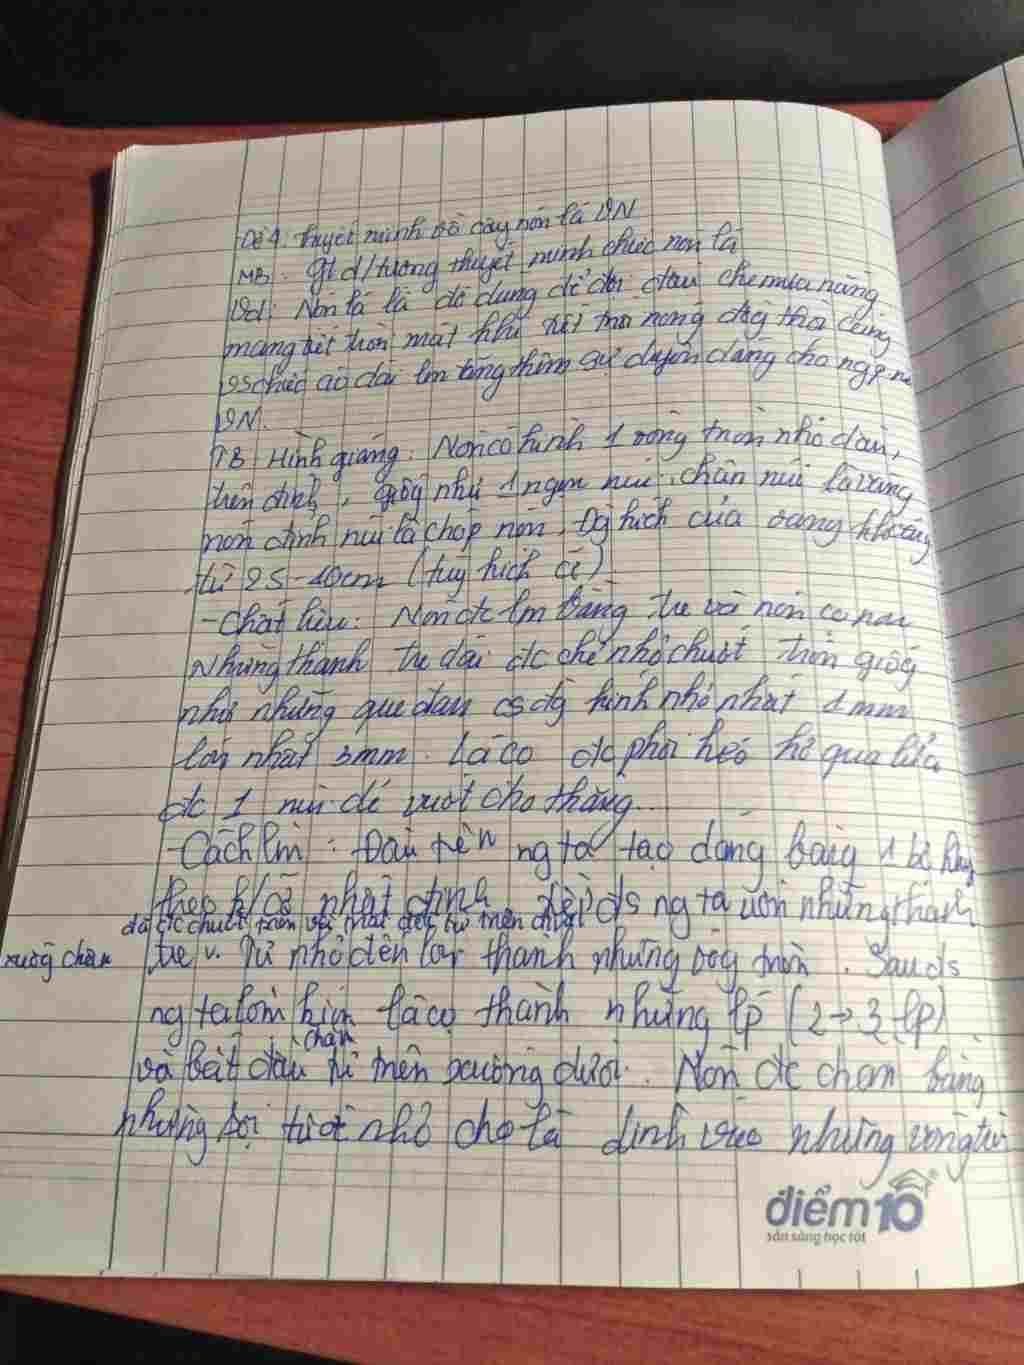 Đề 4: Thuyết minh về cây nón lá VN
MB: Gt đ/tượng thuyết minh chiếc nón lá
Vd: Nón lá là đồ dùng để đội đầu che mưa nắng
mang lại mát khi trời nóng đồg thời cùng
vs chiếc áo dài lm tăng thêm sự duyên dáng cho ng p.nữ
VN.
TB: Hình giáng: Nón có hình 1 vòng tròn nhỏ dần,
trên đỉnh, giốg như 1 ngọn núi. chân núi là vàng
nón đỉnh núi là chóp nón. Đg kích của vàng khoảng
từ 25-40cm (tuỳ kích cỡ)
- Chất liệu: Nón đc lm bằng tre và nón cọ
Những thanh tre dài đc chẻ nhỏ chuốt tròn giốg
như những que đan cs đg kính nhỏ nhất 1mm
lớn nhất 3mm. Lá cọ đc phơi héo hơ qua lửa
đc 1 để vuốt cho thẳng...
- Cách lm: Đầu tiên ng ta tạo dáng bằng 1 bộ
theo k/cỡ nhất định tiếp đs ng ta uốn những thanh
đã đc chuốt tròn và từ trên đỉnh
xuốg chân tre v. Từ nhỏ đến lớn thành những vòg tròn. Sau đs
ng ta lá cọ thành những lp (2→3 lp)
chằn
và bắt đầu từ trên xuống dưới. Nón đc bằng
những sợi nhỏ cho lá dính vào những vòng tre
điểm 10
sẵn sàng học tốt